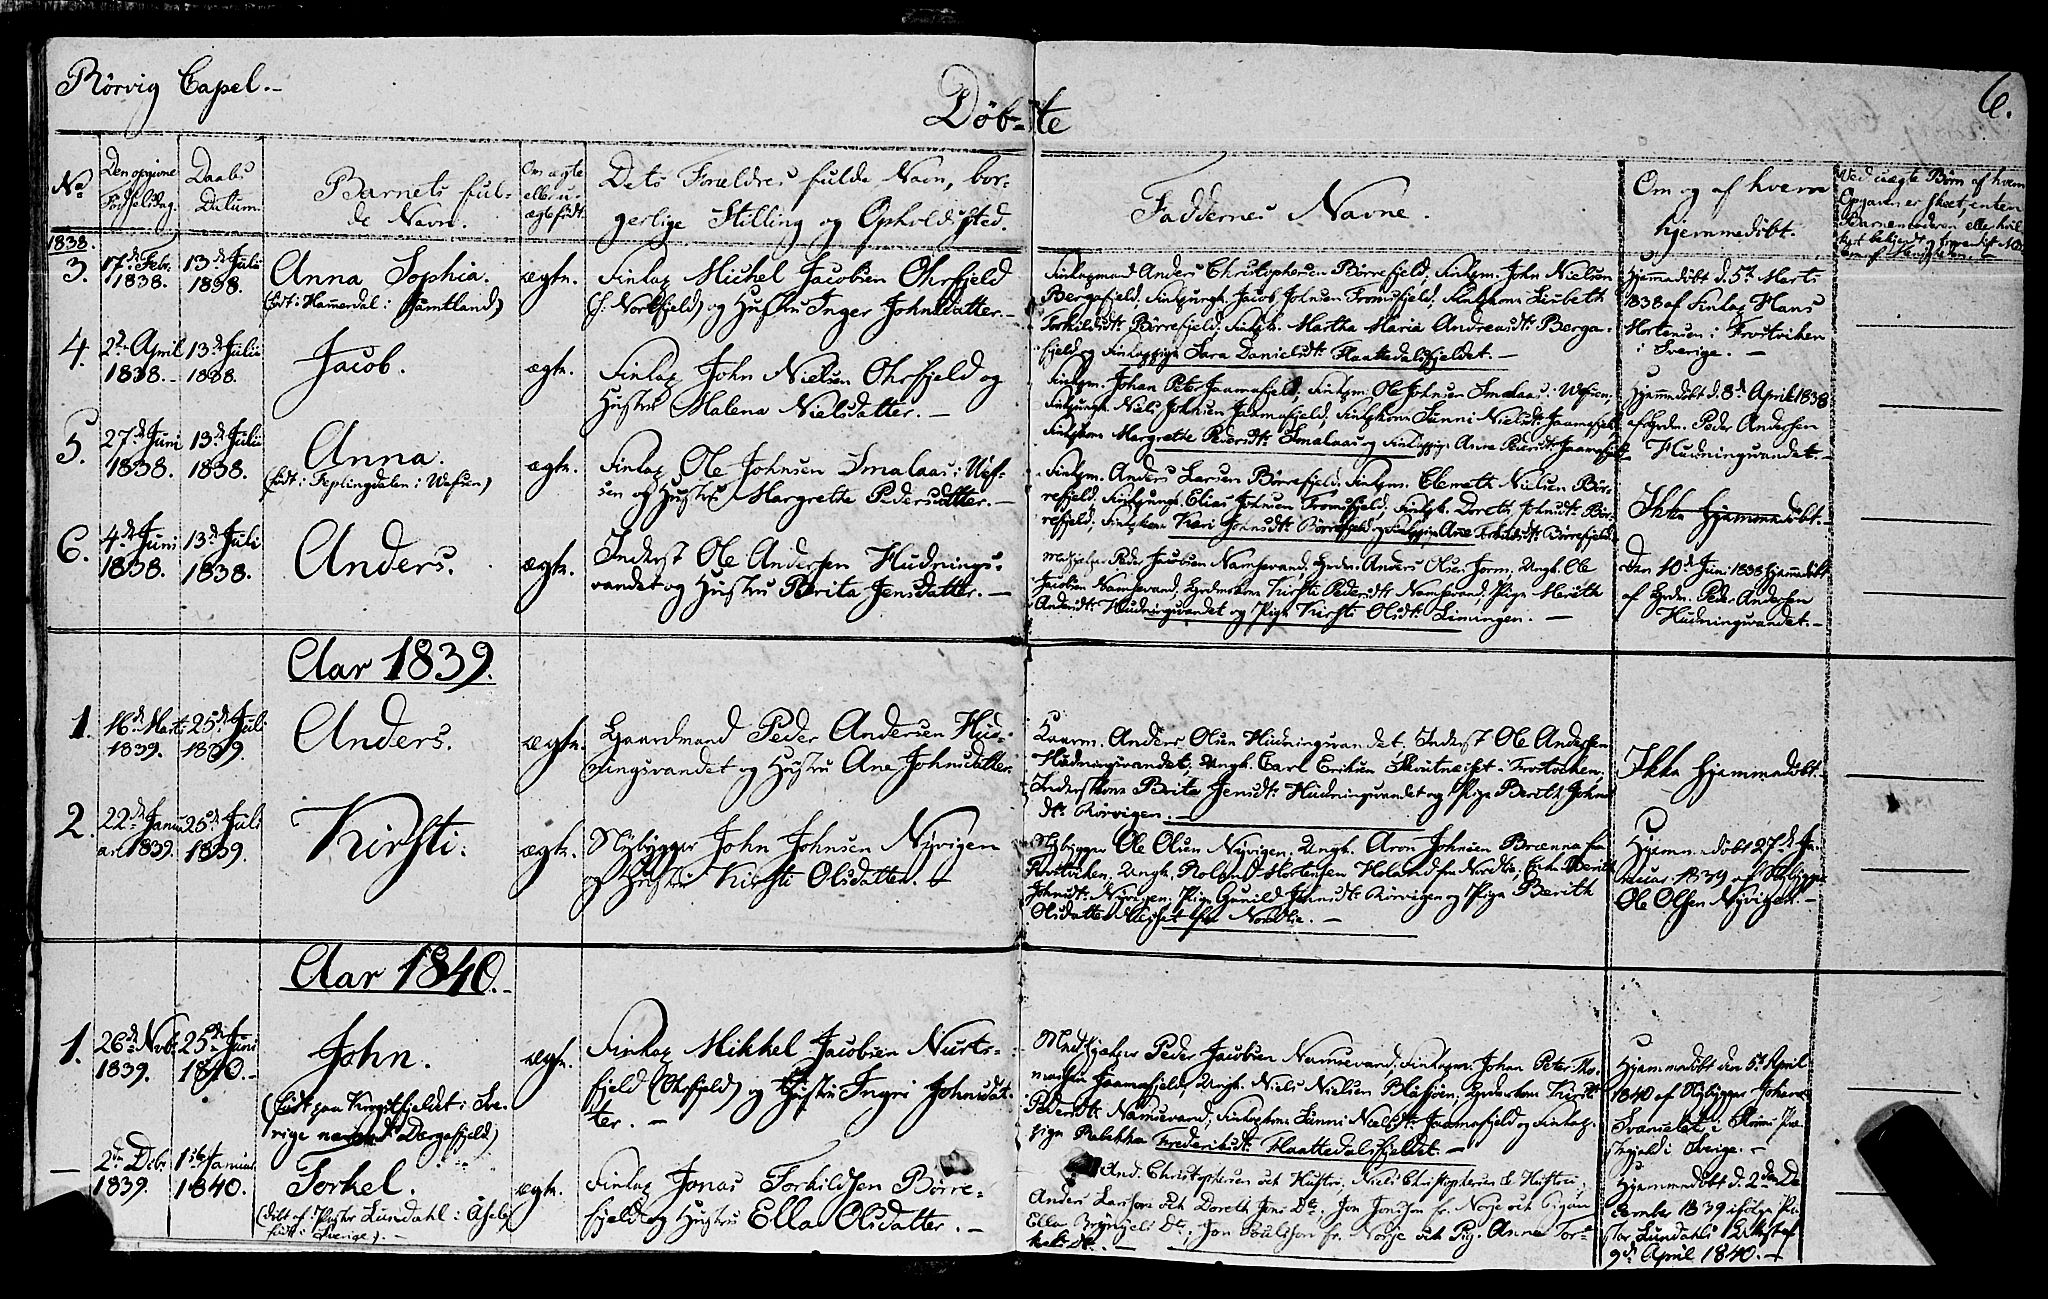 Rörvig Capel.-
Döb-te
6.
No
Den opgivne
Födselsdag.
Daabs
Datum.
Barnets ful-
de Navn.
Om ægte
eller u-
ægte födt.
Dets Forældres fulde Navn, bor-
gerlige Stilling og Opholdssted.
Faddernes Navne.
Om og af hvem
hjemmedöbt.
Ved uægte Börn af hvem
Opgaven er skeet, enten
Barnemoderen eller
1838.
3.
17de Febr.
1838.
13de Julii
1838.
Anna Sophia.
(födt i Hamerdal i Jämtland)
ægte.
Finlap Michel Jacobsen Ohrfjeld
(f. Nortfjeld) og Hustru Inger Johnsdatter.-
Finlapmand Anders Christophersen Börrefjeld, Finlpm. John Nielsen
Bergafjeld, Finlpungk. Jacob Johnsen Fromsfjeld, Finlpkone Lisbeth
Torkildsdt. Börrefjeld, Finlpk. Martha Maria Andreasdt. Berga-
fjeld og Finlappiga Sara Danielsdt. Flaattedalsfjeldet.-
Hjemmedöbt d. 5te Marts
1838 af Finlap Hans
Mortensen i Frostviken
i Sverige.-
4.
2de April
1838.-
13de Julii
1838.
Jacob.
ægte.
Finlap John Nielsen Ohrfjeld og
Hustru Malena Nielsdatter.-
Finlpm. Johan Peter Jaamafjeld, Finlpm. Ole Johnsen Smalaas i Wefsen,
Finlpungk. Niels Johnsen Jaamafjeld, Finlpkone Finni Nielsdt. Jaamafjeld,
Finlpkone Margrethe Pedersdt. Smalaas og Finlappiga Anne Pedersdt. Jaamafjeld
Hjemmedöbt d. 8de April 1838
af Grdm. Peder Andersen
Hudningsvandet.-
5.
27de Juni
1838.
13de Julii
1838.
Anna.
(födt i Fiplingdalen i Wefsen)
ægte.
Finlap Ole Johnsen Smalaas i Wef-
sen og Hustru Margrethe Pedersdatter.-
Finlpm. Anders Larsen Börrefjeld, Finlpm. Clemeth Nielsen Bör-
refjeld, Finlpungk. Elias Johnsen Fromsfjeld, Finlpk. Doreth Johnsdt. Bör-
refjeld, Finlpkone Kari Johnsdt. Börrefjeld og Finlappiga Ane Torkildsdt. Börrefjeld
Ikke hjemmedöbt.-
6.
4de Juni
1838.
13de Juli
1838.
Anders.
ægte.
Inderst Ole Andersen Hudnings-
vandet og Hustru Berita Jensdatter.-
Medhjelper Peder Jacobsen Namsvand, Grdm. Anders Olsen Jorm, Ungk. Ole
Jacobsen Namsvand, Grdmkone Kirsti Pedersdt. Namsvand, Pige Merith
Andersdt. Hudningsvandet og Pige Kirsti Olsdt. Limingen.-
Den 10de Juni 1838 hjemmedöbt
af Grdm. Peder Andersen
Hudningsvandet.-
Aar 1839.
1.
16de Marts
1839.
25de Juli
1839.
Anders.
ægte.
Gaardmand Peder Andersen Hud-
ningsvandet og Hustru Ane Johnsdatter.
Gaarm. Anders Olsen Hudningsvandet, Inderst Ole Andersen
Hudningsvandet, Ungk. Carl Eriksen i Frostviken,
Inderstkone Brita Jensdt. Hudningsvandet og Pige Berith Johns
dt. Rörvigen.-
Ikke hjemmedöbt.-
2.
22de Janu
ar 1839.
25de Juli
1839.
Kirsti.
ægte.
Nybygger John Johnsen Nyvigen
og Hustru Kirsti Olsdatter.-
Nybygger Ole Olsen Nyvigen, Ungk. Aron Johnsen Brænna fra
Frostviken, Ungk. Roland Mortensen Holand fra Nordlie, Enke Berith
Johnsdt. Nyvigen, Pige Gunild Johnsdt. Rörvigen og Pige Berith
Olsdatter fra Nordlie.-
Hjemmedöbt 27de Ja-
nuar 1839 af Nybygger
Ole Olsen Nyvigen.-
Aar 1840.-
1.
26de Novb.
1839.
25de Juni
1840.-
John.
(födt paa Kingstfjeldet i Sve-
rige Dergafjeld)
ægte.
Finlap Mikkel Jacobsen Nurts-
fjeld (Ohrfjeld) og Hustru Ingri Johnsdat-
ter.-
Medhjelper Peder Jacobsen Namsvand, Finlapm. Johan Peter Tho-
massen Jaamafjeld, Ungk. Niels Nielsen Blasjöen, Grdmkone Kirsti
Pedersdt. Namsvand, Finlapkone Finni Nielsdt. Jaamafjeld og Finlap-
piga Rebekka Frederiksdt. Flaattedalsfjeldet.-
Hjemmedöbt den 5te April
1840 af Nybygger Johannes
Svanselet i Præ-
stegjeld i Sverige.-
-
2den Debr.
1839.
1ste Januar
1840.
Torkel.
(döbt af Pastor Lundahl i Asele
födt i Sverige).-
ægte.
Finlap Jonas Torkildsen Börre-
fjeld og Hustru Ella Olsdatter.-
And. Christophersen och Hustru, Niels Christophersen & Hustru,
Anders Larsson och Doreth Jons Dtr., Jon Jonsson fr. Norje och Pigan
Ella Brynjels Dtr., Jon Poulsson fr. Norje och Pig. Anna Tor-
kels Dtr.-
Hjemmedöbt d. 2den De
cember 1839 ifölge Pa-
stor Lundahls Attest af
9de April 1840.-